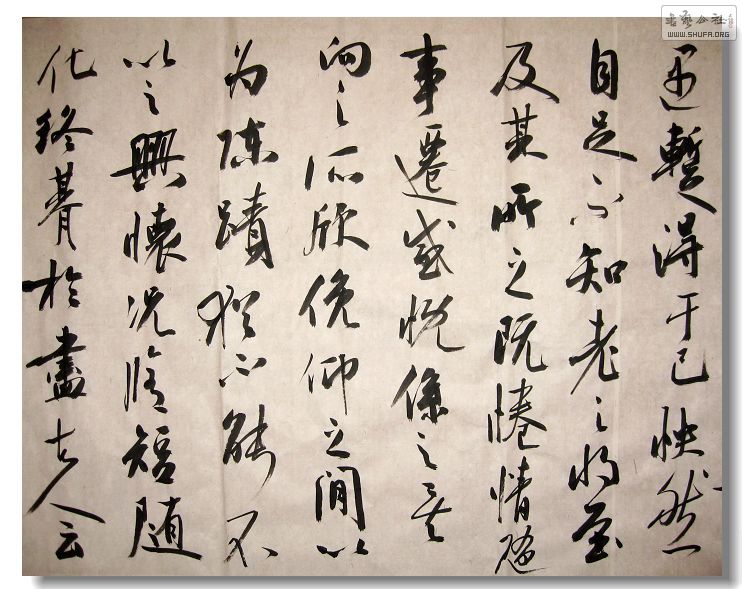 遇暫得于己怏然
自足不知老之將至
及其所之既惓情隨
事遷感慨係之矣
向之所欣俛仰之間以
為陳蹟猶不能不
以之興懷況脩短隨
化終朞於盡古人云
書藝公社
WWW.SHUFA.ORG